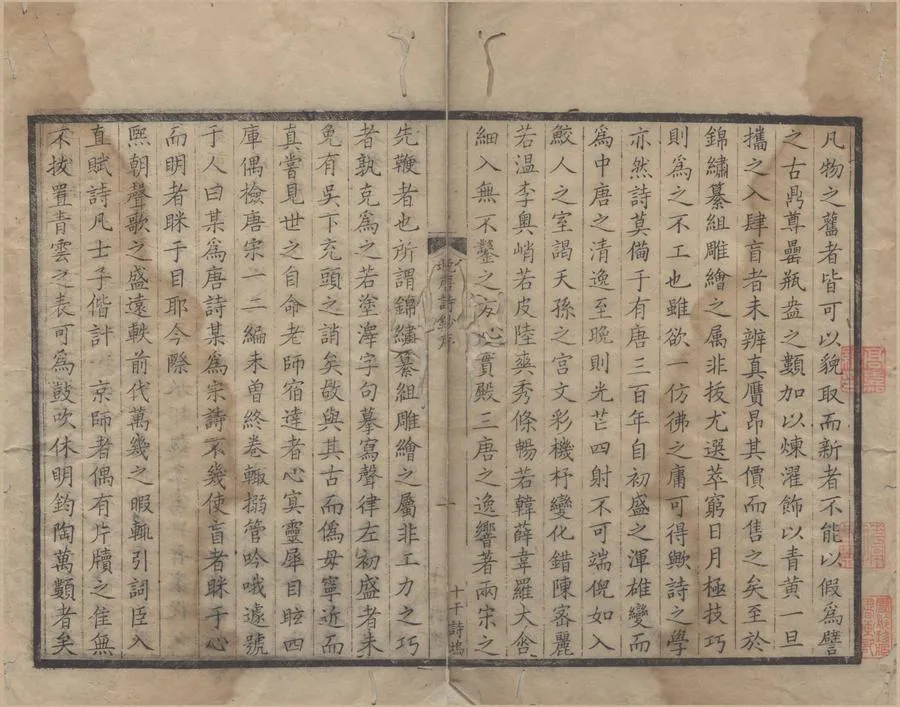 凡物之舊者皆可以貌取而新者不能以假為譬
之古鼎尊罍瓶盎之類加以煉濯飾以青黃一旦
攜之入肆盲者未辨真贋昂其價而售之矣至於
錦繡纂組雕繪之属非拔尤選萃窮日月極技巧
則為之不工也雖欲一仿彿之庸可得歟詩之學
亦然詩莫備于有唐三百年自初盛之渾雄變而
為中唐之清逸至晚則光芒四射不可端倪如入
鮫人之室謁天孫之宮文彩機杼變化錯陳密麗
若溫李奧峭若皮陸爽秀條暢若韓薛韋羅大含
細入無不鑿之方心實殿三唐之逸響著兩宋之
晚唐詩鈔序
一
十千詩塢
先鞭者也所謂錦繡纂組雕繪之屬非工力之巧
者孰克為之若塗澤字句摹寫聲律左初盛者未
免有吳下充頭之誚矣故與其古而偽毋寧近而
真嘗見世之自命老師宿達者心寘靈犀目眩四
庫偶檢唐宋一二編未曾終卷輙搦管吟哦遽號
于人曰某為唐詩某為宋詩不幾使盲者眯于心
而明者眯于目耶今際
熙朝聲歌之盛遠軼前代萬幾之暇輒引詞臣入
直賦詩凡士子偕計 京師者偶有片牘之佳無
不拔置青雲之表可為鼓吹休明鈞陶萬類者矣